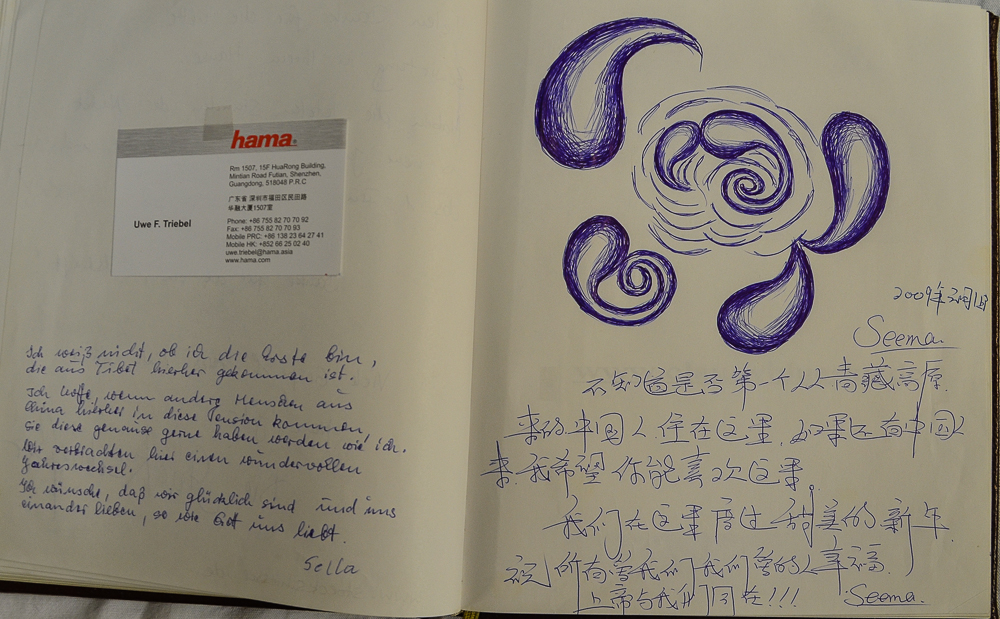 hama.
Rm 1507, 15F HuaRong Building,
Mintian Road Futian, Shenzhen,
Guangdong, 518048 P.R.C
广东省 深圳市福田区民田路
华融大厦1507室
Uwe F. Triebel
Phone: +86 755 82 70 70 92
Fax: +86 755 82 70 70 93
Mobile PRC: +86 138 23 64 27 41
Mobile HK: +852 66 25 02 40
uwe.triebel@hama.asia
www.hama.com
Ich weiß nicht, ob ich die Erste bin,
die aus Tibet hierher gekommen ist.
Ich hoffe, wenn andere Menschen aus
China hierher in diese Pension kommen,
sie diese genauso gerne haben werden wie ich.
Wir verbrachten hier einen wundervollen
Jahreswechsel.
Ich wünsche, daß wir glücklich sind und uns
einander lieben, so wie Gott uns liebt.
Sella
2009年元月1日
Seema.
不知道是否第一个从青藏高原
来的中国人住在这里,如果还有中国人
来,我希望你能喜欢这里。
我们在这里度过甜美的新年.
祝所有爱我们我们爱的人幸福.
上帝与我们同在!!! Seema.